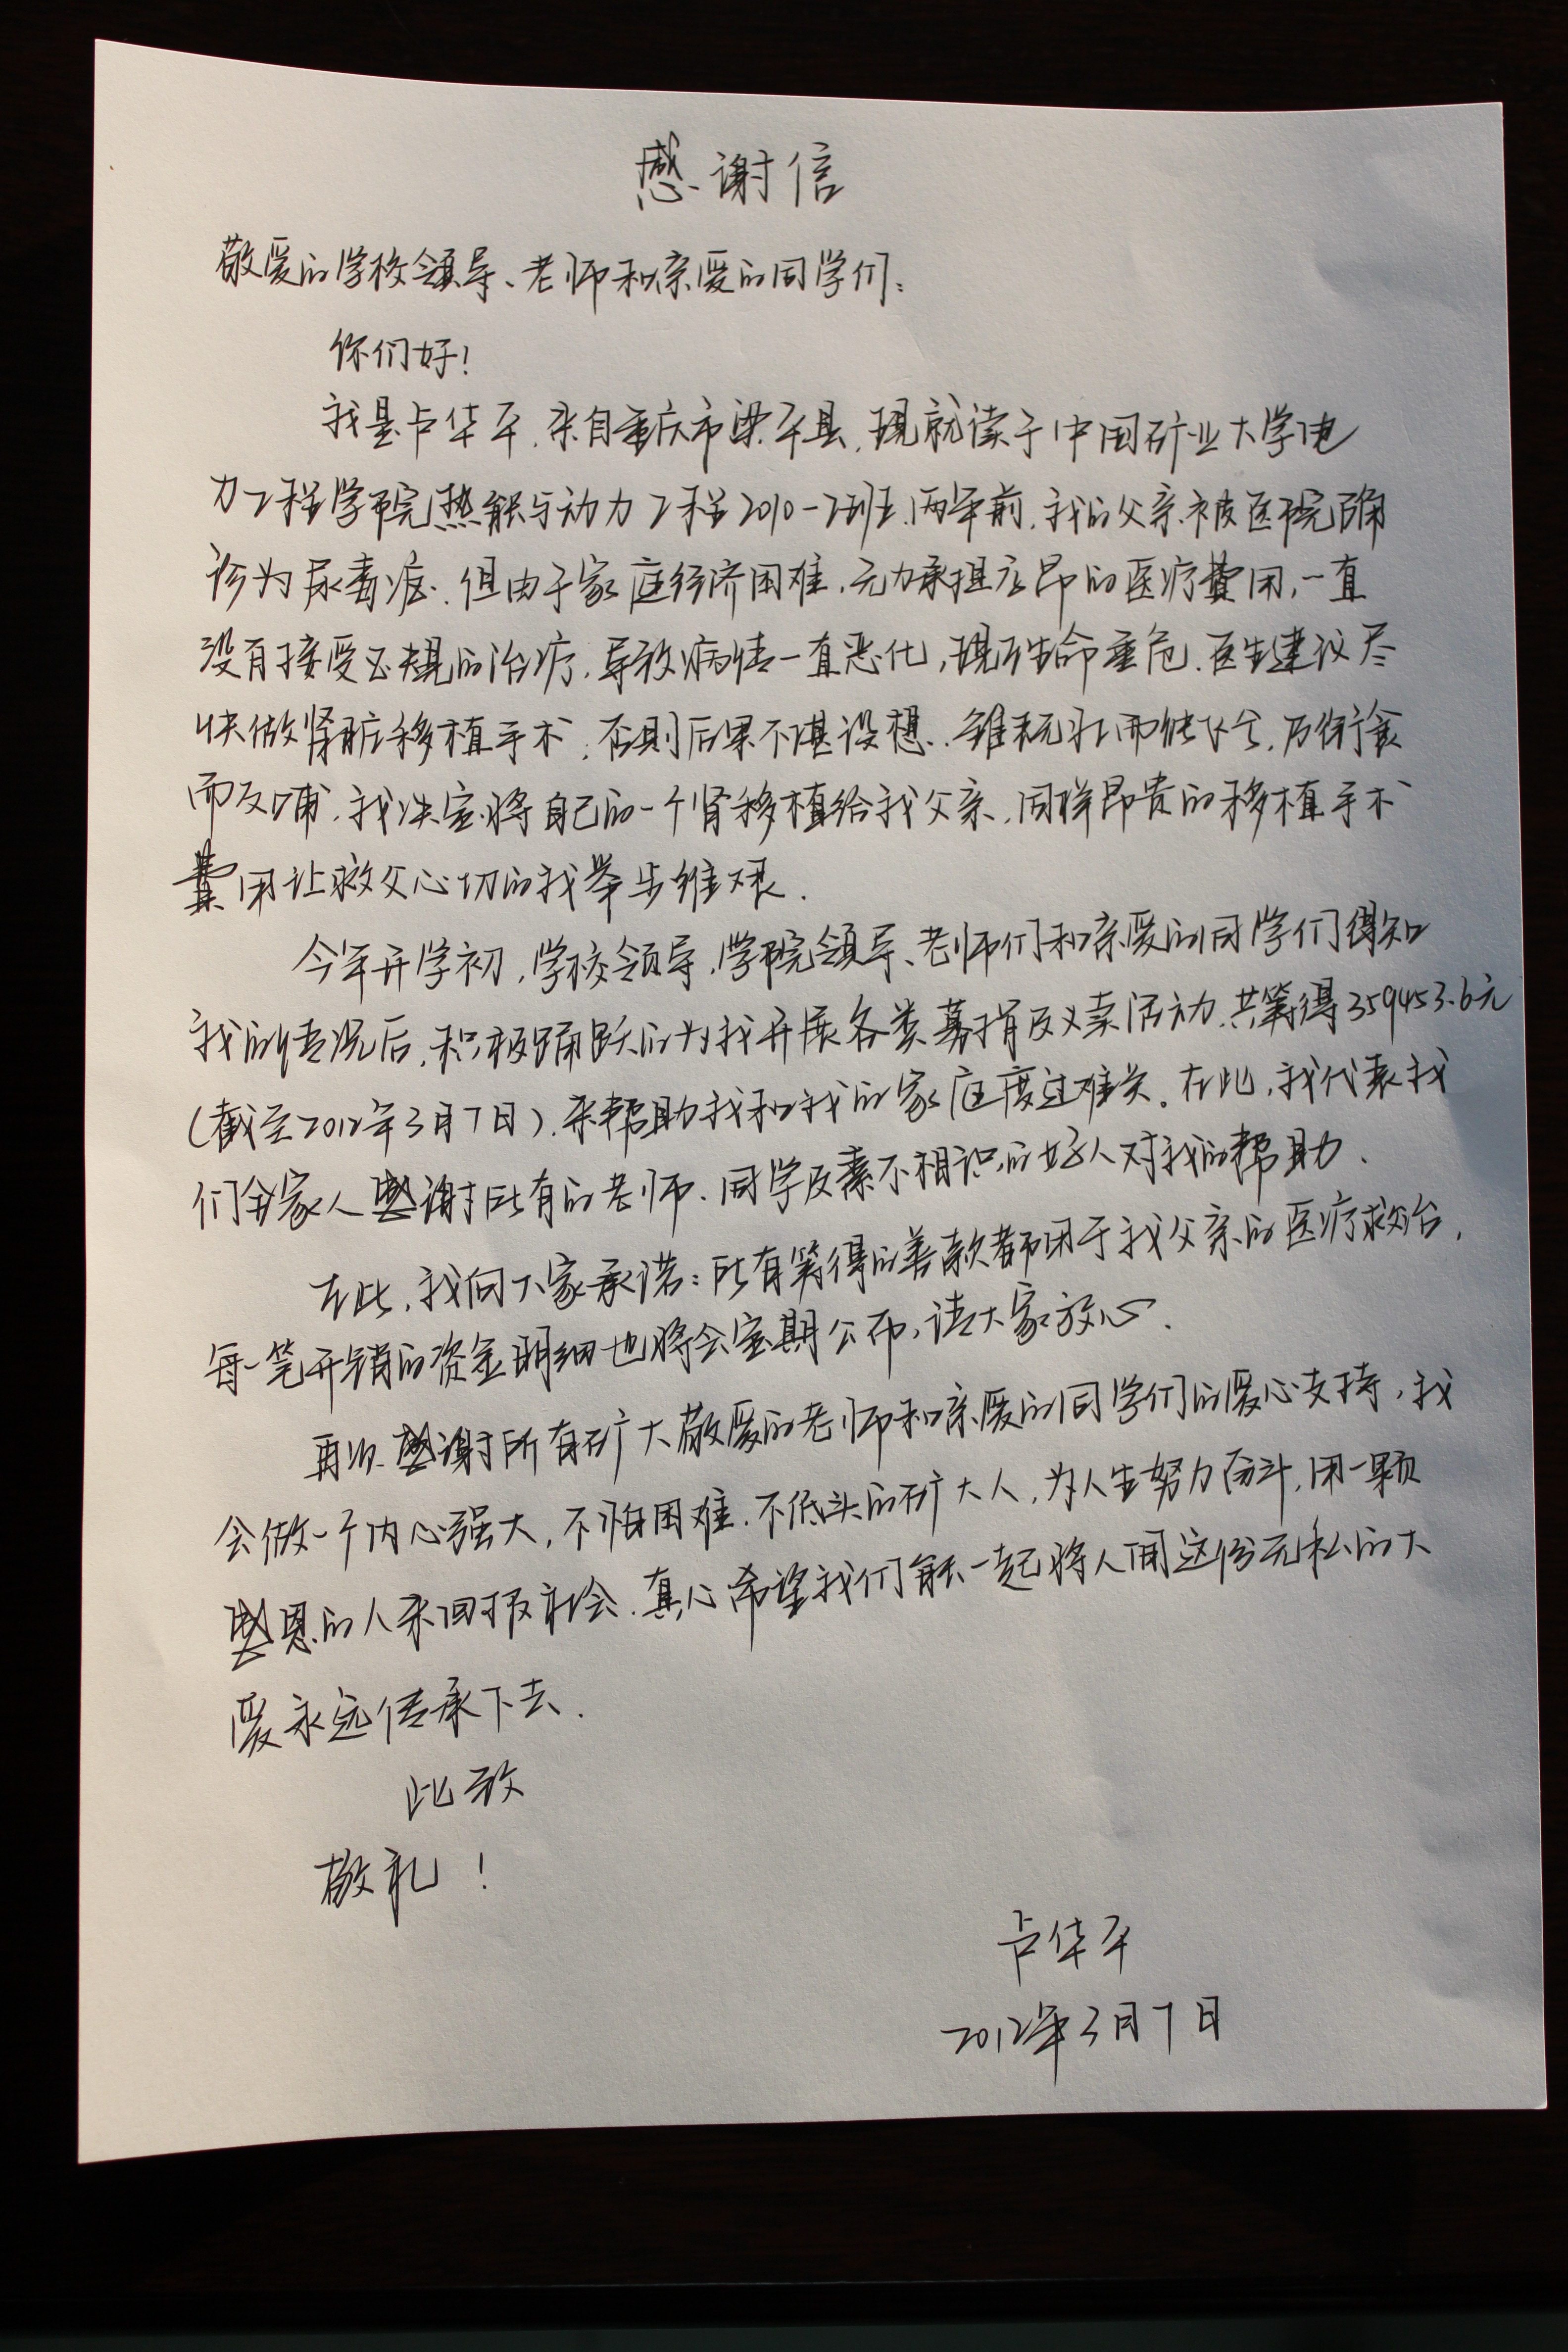 感谢信
敬爱的学校领导、老师和亲爱的同学们：
你们好！
我是卢华平，来自重庆市梁平县，现就读于中国矿业大学电
力工程学院热能与动力工程2010-2班.两年前，我的父亲被医院确
诊为尿毒症.但由于家庭经济困难，无力承担高昂的医疗费用，一直
没有接受正规的治疗，导致病情一直恶化，现生命垂危.医生建议尽
快做肾脏移植手术，否则后果不堪设想.
而反哺，我决定将自己的一个肾移植给我父亲，同样昂贵的移植手术
费用让救父心切的我举步维艰.
今年开学初，学校领导，学院领导、老师们和亲爱的同学们得知
我的情况后，积极踊跃的为我开展各类募捐及义卖活动，共筹得359453.6元
（截至2012年3月7日），来帮助我和我的家庭度过难关。在此，我代表我
们全家人感谢所有的老师、同学及素不相识的好人对我的帮助.
在此，我向大家承诺：所有筹得的善款都用于我父亲的医疗救治，
每一笔开销的资金明细也将会定期公布，请大家放心.
再次感谢所有矿大敬爱的老师和亲爱的同学们的爱心支持，我
会做一个内心强大，不怕困难.不低头的矿大人，为人生努力奋斗，用一颗
感恩的人来回报社会.真心希望我们能一起将人间这份无私的大
爱永远传承下去.
此致
敬礼！
卢华平
2012年3月7日